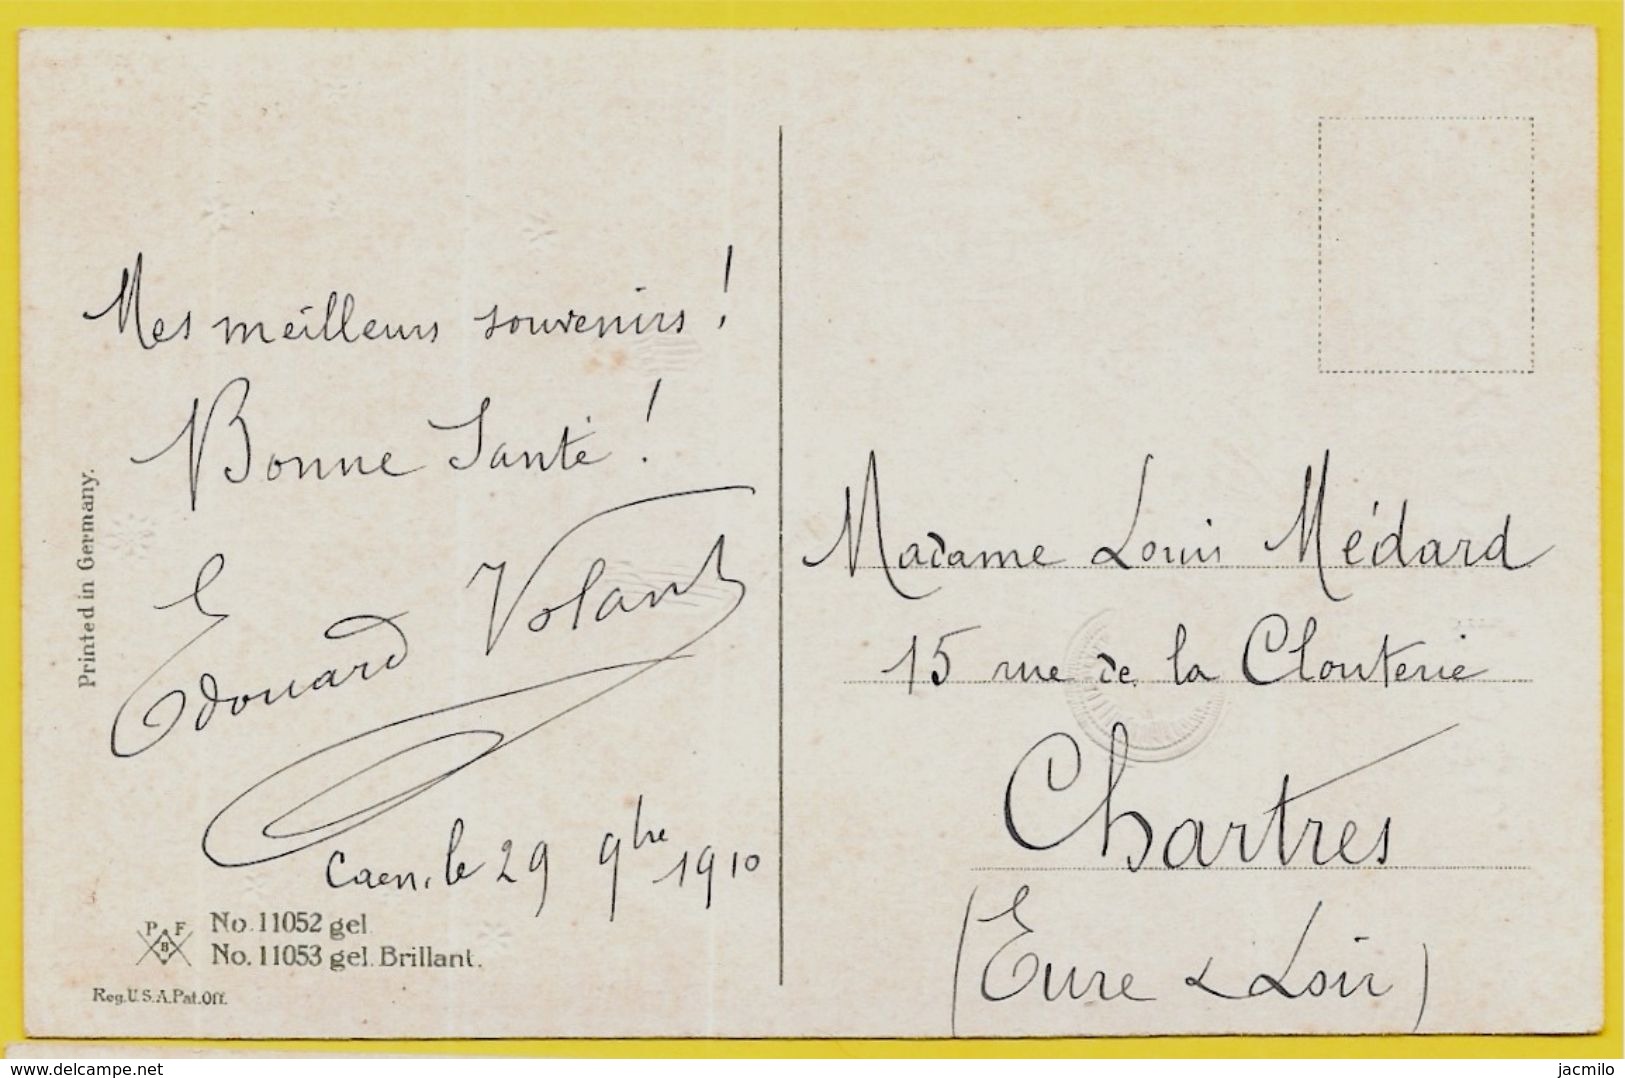 Mes meilleurs souvenirs !
Bonne Santé !
Edouard Volant
Caen, le 29 9bre 1910
Printed in Germany.
P F B
No. 11052 gel.
No. 11053 gel. Brillant.
Reg. U.S.A. Pat. Off.
Madame Louis Médard
15 rue de la Clouterie
Chartres
(Eure & Loir)
www.delcampe.net
jacmilo